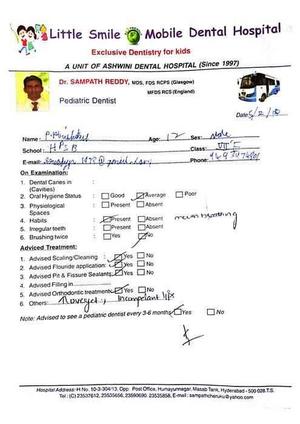 Little Smile Mobile Dental Hospital
Exclusive Dentistry for kids
A UNIT OF ASHWINI DENTAL HOSPITAL (Since 1997)
Dr. SAMPATH REDDY, MDS, FDS RCPS (Glasgow)
MFDS RCS (England)
Pediatric Dentist
Date:
Name: Age: 12 Sex: Male
School: HPSB Class: VII E
E-mail: Phone:
On Examination:
1. Dental Caries in (Cavities)
2. Oral Hygiene Status Good Average Poor
3. Physiological Spaces Present Absent
4. Habits Present Absent mouth breathing
5. Irregular teeth Present Absent
6. Brushing twice Yes No
Adviced Treatment:
1. Advised Scaling/Cleaning Yes No
2. Advised Flouride application Yes No
3. Advised Pit & Fissure Sealants Yes No
4. Advised Filling in
5. Advised Orthodontic treatment Yes No
6. Others: Incompetent lips
Note: Advised to see a pediatric dentist every 3-6 months Yes No
Hospital Address: H.No. 10-3-304/13, Opp. Post Office, Humayunnagar, Masab Tank, Hyderabad - 500 028 T.S.
Tel.: (C) 23537612, 23535656, 23590690, 23535858, E-mail: sampathcheruku@yahoo.com